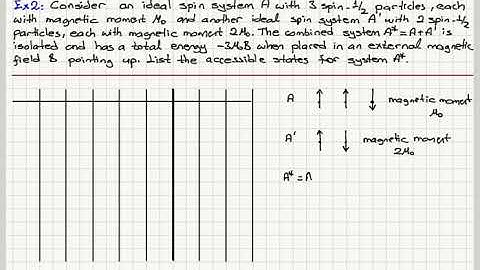 Ex2: Consider an ideal spin system A with 3 spin-1/2 particles, each
with magnetic moment μ₀ and another ideal spin system A' with 2 spin-1/2
particles, each with magnetic moment 2μ₀. The combined system A*=A+A' is
isolated and has a total energy -3μ₀B when placed in an external magnetic
field B pointing up. List the accessible states for system A*.
A ↑ ↑ ↓ magnetic moment
μ₀
A' ↑ ↓ magnetic moment
2μ₀
A*=A